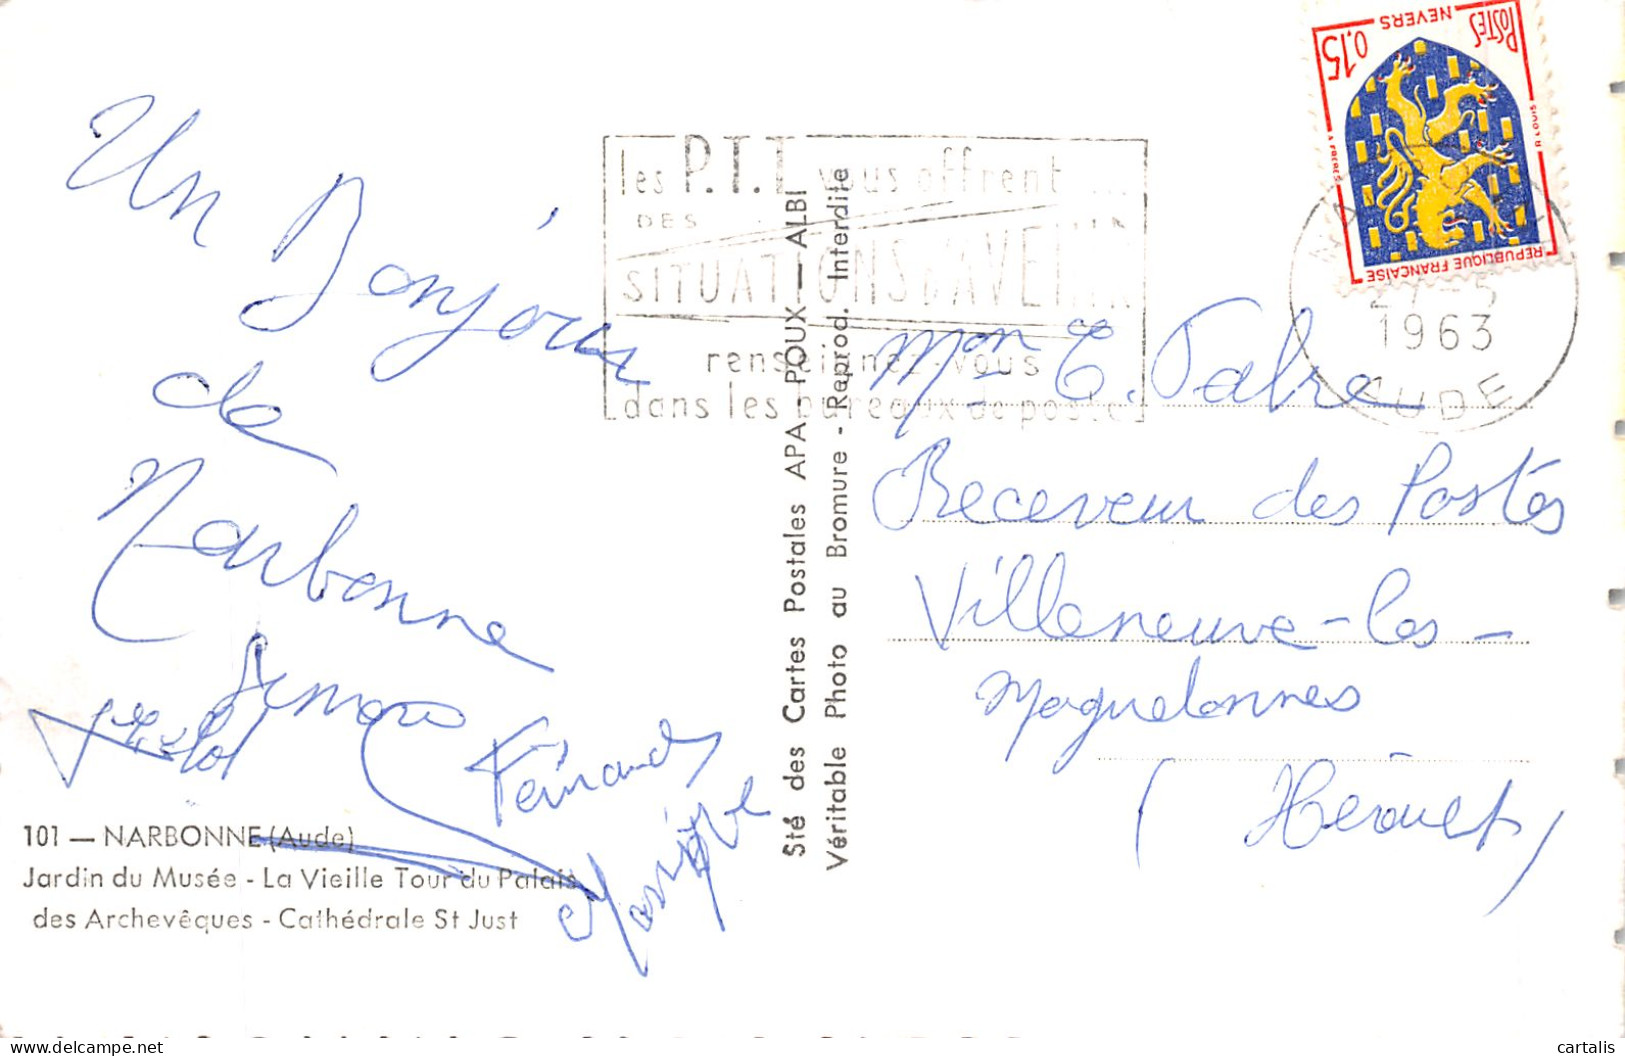 Un Bonjour
de
Narbonne
Fernand
Monique
101 — NARBONNE (Aude)
Jardin du Musée - La Vieille Tour du Palais
des Archevêques - Cathédrale St Just
Sté des Cartes Postales APA-POUX — ALBI
Véritable Photo au Bromure - Reprod. Interdite
les P.T.T vous offrent ...
DES
SITUATIONS D'AVENIR
renseignez-vous
dans les bureaux de poste
POSTES
NEVERS
0,15
REPUBLIQUE FRANÇAISE
27-5
1963
AUDE
Mon C. Fabre
Receveur des Postes
Villeneuve-les-
Maguelonnes
(Hérault)
cartalis